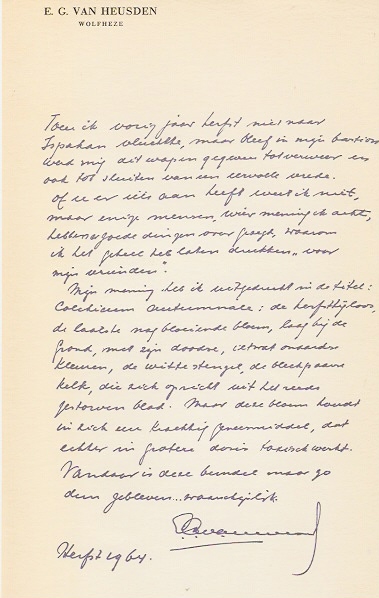 E. G. VAN HEUSDEN
WOLFHEZE
Toen ik vorig jaar herfst niet naar
Ispahan vluchtte, maar bleef in mijn bastion
werd mij dit wapen gegeven tot verweer en
ook tot sluiten van een eervolle vrede.
Of u er iets aan heeft weet ik niet,
maar enige mensen, wier mening ik acht,
hebben er goede dingen over gezegd, waarom
ik het geheel heb laten drukken „voor
mijn vrienden".
Mijn mening heb ik uitgedrukt in de titel:
Colchicum autumnale: de herfsttijloos,
de laatste nog bloeiende bloem, laag bij de
grond, met zijn doodse, ietwat onaardse
kleuren, de witte stengel, de bleekpaarse
kelk, die zich opricht uit het reeds
gestorven blad. Maar deze bloem houdt
in zich een krachtig geneesmiddel, dat
echter in grotere dosis toxisch werkt.
Vandaar is deze bundel maar zo
dun gebleven... waarschijnlijk.
Herfst 1964.